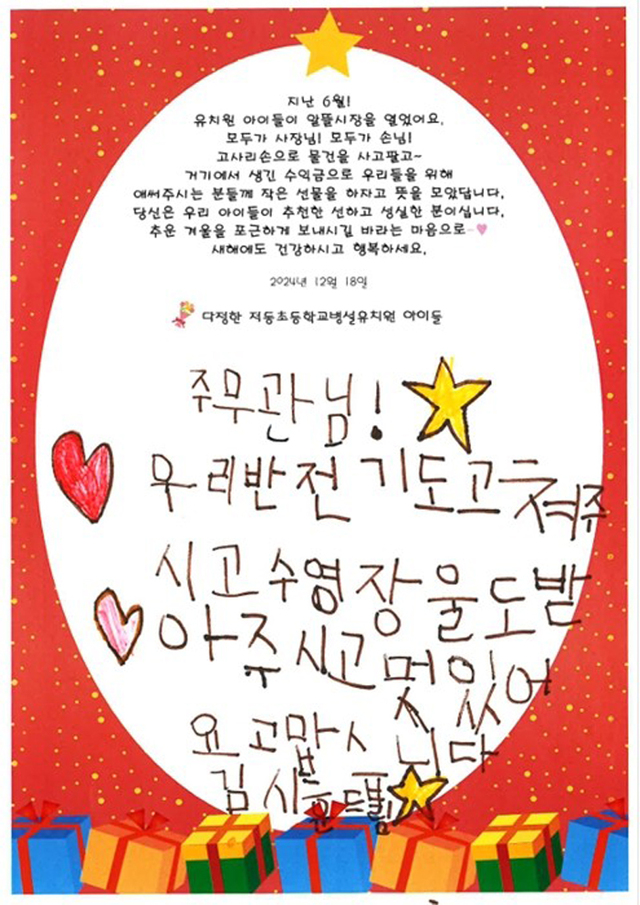 지난 6월!
유치원 아이들이 알뜰시장을 열었어요.
모두가 사장님! 모두가 손님!
고사리손으로 물건을 사고팔고~
거기에서 생긴 수익금으로 우리들을 위해
애써주시는 분들께 작은 선물을 하자고 뜻을 모았답니다.
당신은 우리 아이들이 추천한 선하고 성실한 분이십니다.
추운 겨울을 포근하게 보내시길 바라는 마음으로~
새해에도 건강하시고 행복하세요.
2024년 12월 18일
다정한 저동초등학교병설유치원 아이들
주무관님!
우리반전기도고쳐주
시고수영장울도받
아주시고멋있어
요고맙시니다
김시훈드림